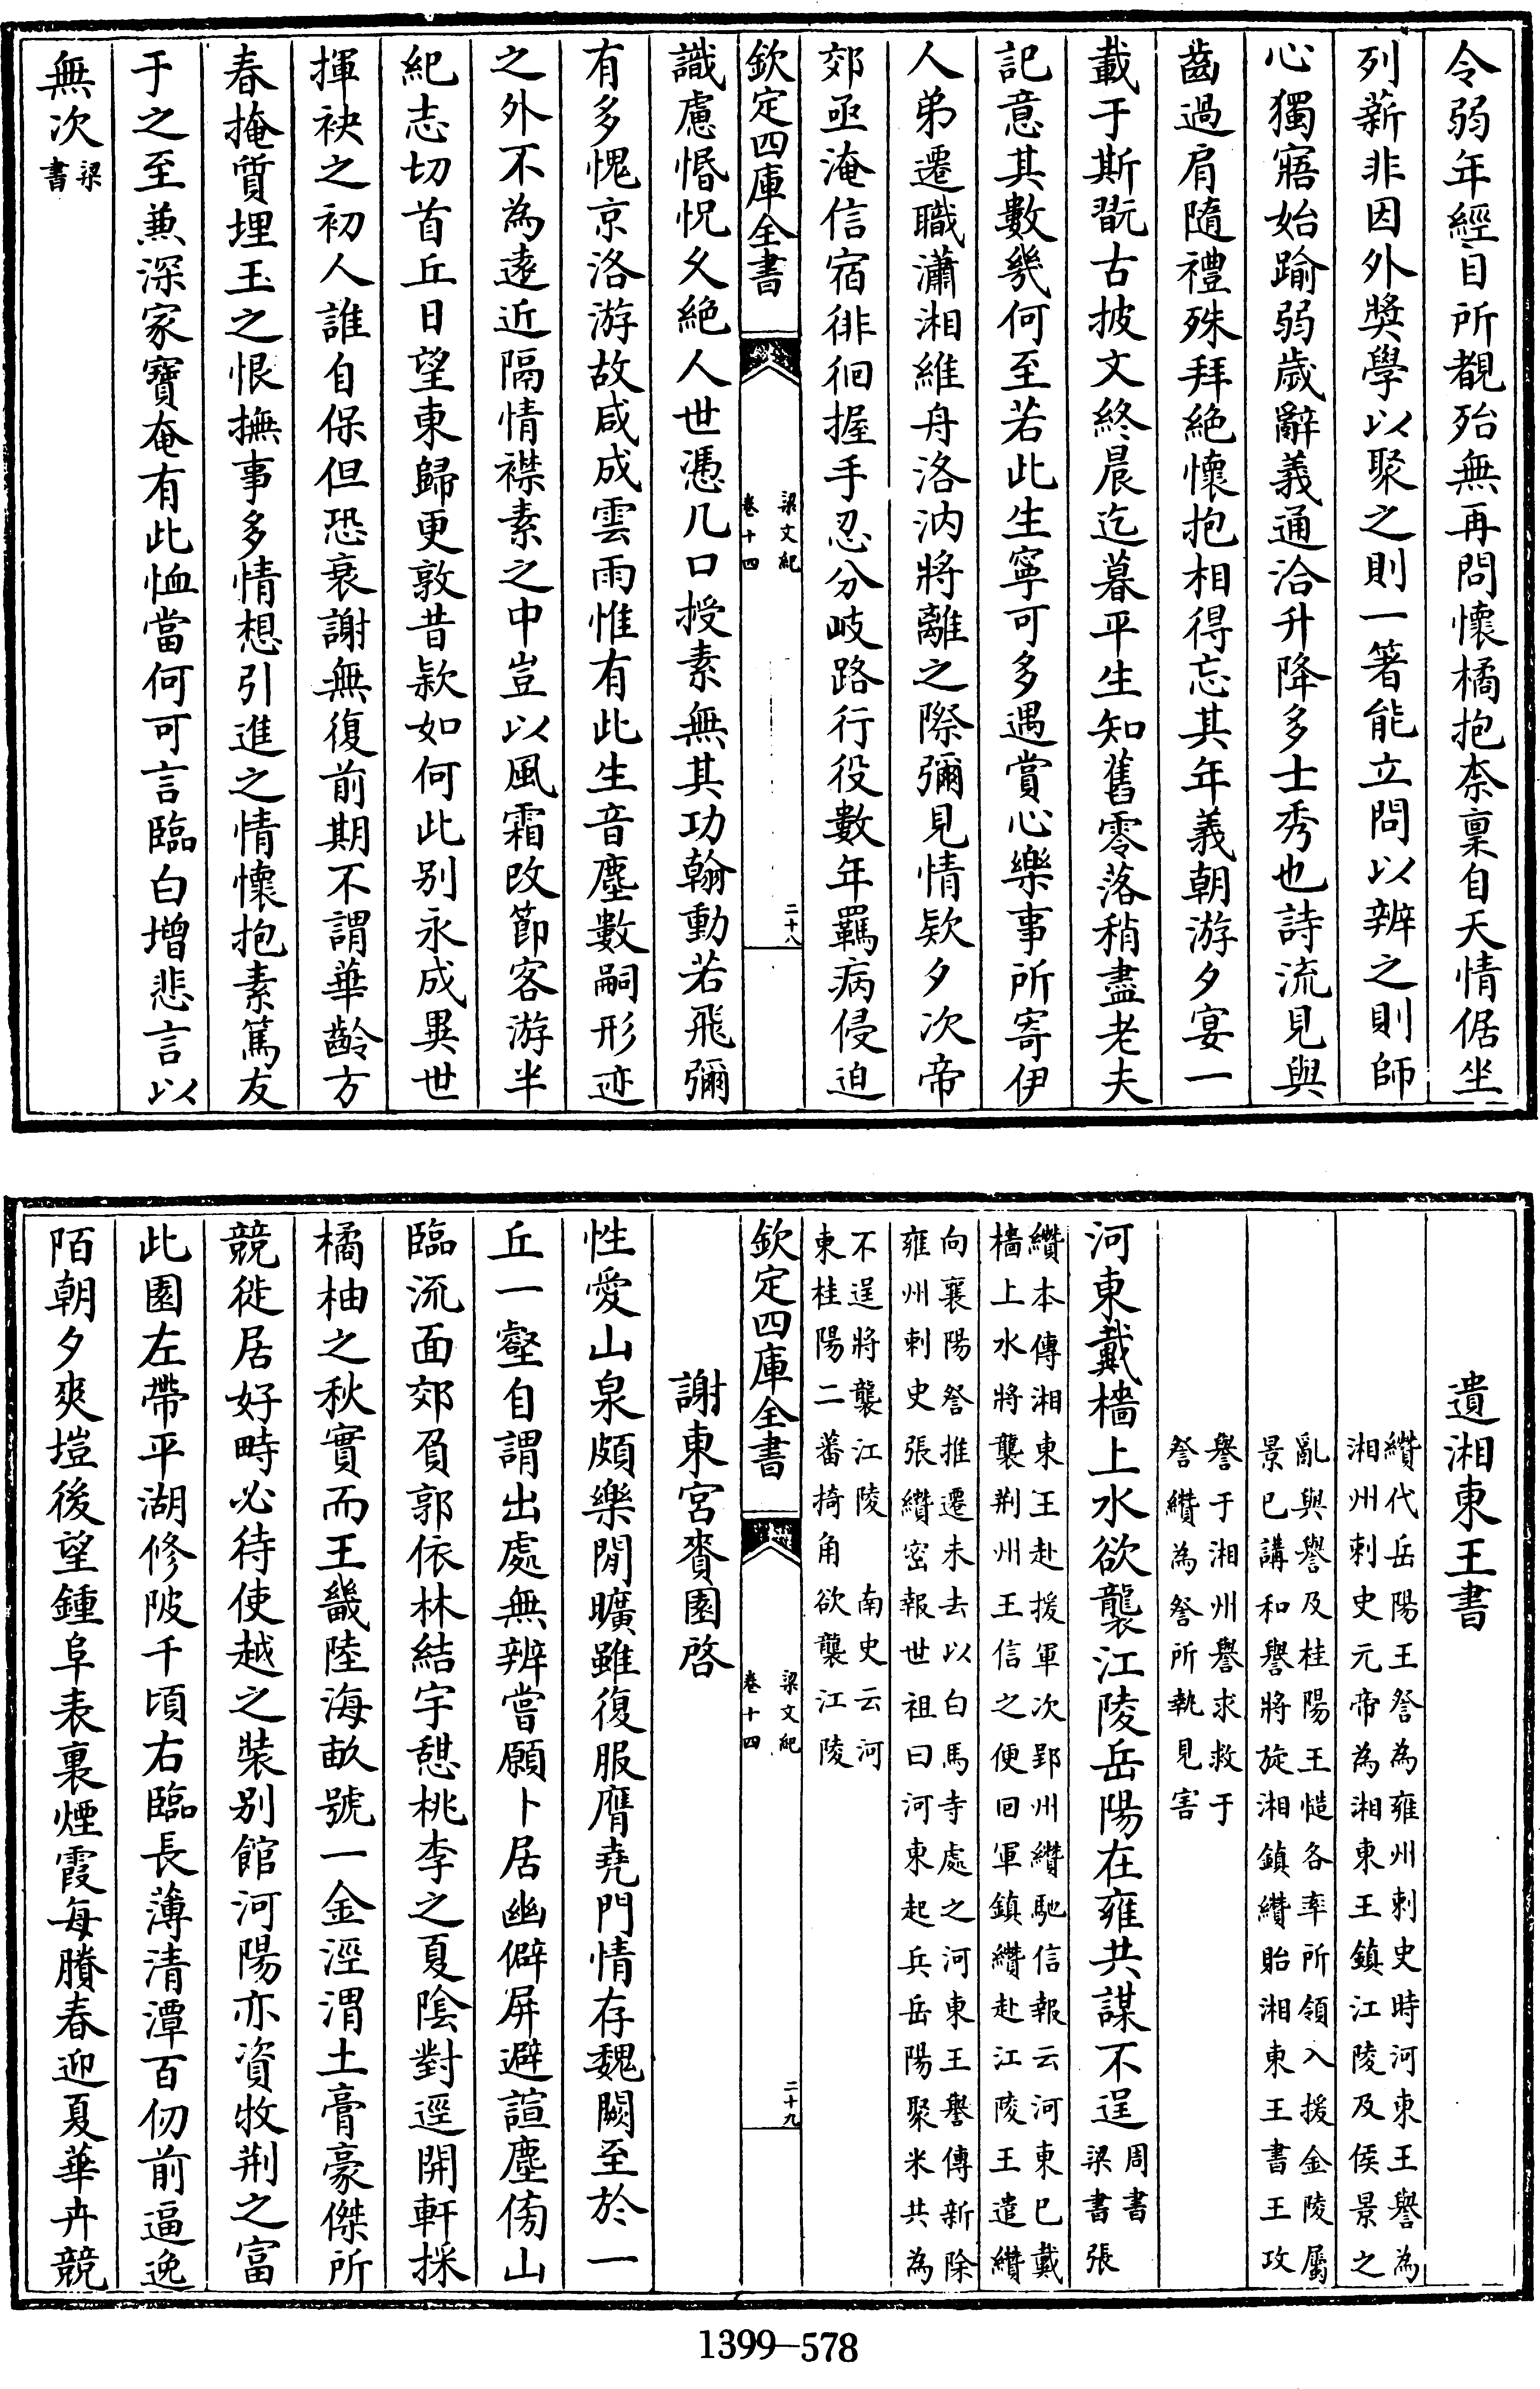 令弱年經目所覩殆無再問懷橘抱柰稟自天情倨坐
列薪非因外奬學以聚之則一箸能立問以辨之則師
心獨寤始踰弱歲辭義通洽升降多士秀也詩流見與
齒過肩隨禮殊拜絶懷抱相得忘其年義朝游夕宴一
載于斯翫古披文終晨迄暮平生知舊零落稍盡老夫
記意其數幾何至若此生寧可多遇賞心樂事所寄伊
人弟遷職瀟湘維舟洛汭將離之際彌見情欵夕次帝
郊亟淹信宿徘徊握手忍分岐路行役數年羈病侵迫
欽定四庫全書
梁文紀
卷十四
二十八
識慮惛怳久絶人世憑几口授素無其功翰動若飛彌
有多愧京洛游故咸成雲雨惟有此生音塵數嗣形迹
之外不為逺近隔情襟素之中豈以風霜改節客游半
紀志切首丘日望東歸更敦昔欵如何此别永成異世
揮袂之初人誰自保但恐衰謝無復前期不謂華齡方
春掩質埋玉之恨撫事多情想引進之情懷抱素篤友
于之至兼深家寶奄有此恤當何可言臨白增悲言以
無次梁
書
遺湘東王書
纘代岳陽王詧為雍州刺史時河東王譽為
湘州刺史元帝為湘東王鎮江陵及侯景之
亂與譽及桂陽王慥各率所領入援金陵屬
景已講和譽將旋湘鎮纘貽湘東王書王攻
譽于湘州譽求救于
詧纘為詧所執見害
河東戴檣上水欲襲江陵岳陽在雍共謀不逞周書
梁書張
纘本傳湘東王赴援軍次郢州纘馳信報云河東已戴
檣上水將襲荆州王信之便回軍鎮纘赴江陵王遣纘
向襄陽詧推遷未去以白馬寺處之河東王譽傳新除
雍州刺史張纘密報世祖曰河東起兵岳陽聚米共為
不逞將襲江陵 南史云河
東桂陽二蕃掎角欲襲江陵
欽定四庫全書
梁文紀
卷十四
二十九
謝東宮賚園啓
性愛山泉頗樂閒曠雖復服膺堯門情存魏闕至於一
丘一壑自謂出處無辨嘗願卜居幽僻屏避諠塵傍山
臨流面郊負郭依林結宇憩桃李之夏隂對逕開軒採
橘柚之秋實而王畿陸海畝號一金涇渭土膏豪傑所
競徙居好畤必待使越之裝别館河陽亦資牧荆之富
此園左帶平湖修陂千頃右臨長薄清潭百仞前逼逸
陌朝夕爽塏後望鍾阜表裏煙霞每賸春迎夏華卉競
1399-578